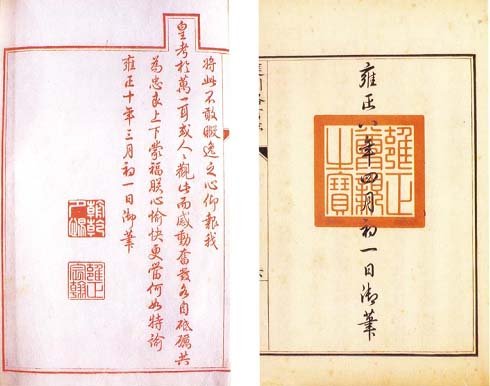 將此不敢暇逸之心仰報我
皇考於萬一耳或人〻觀此而感動奮發各自砥礪共
為忠良上下蒙福朕心愉快更當何如特諭
雍正十年三月初一日御筆
朝乾夕惕
雍正宸翰
雍正八年四月初一日御筆
雍正御筆之寶